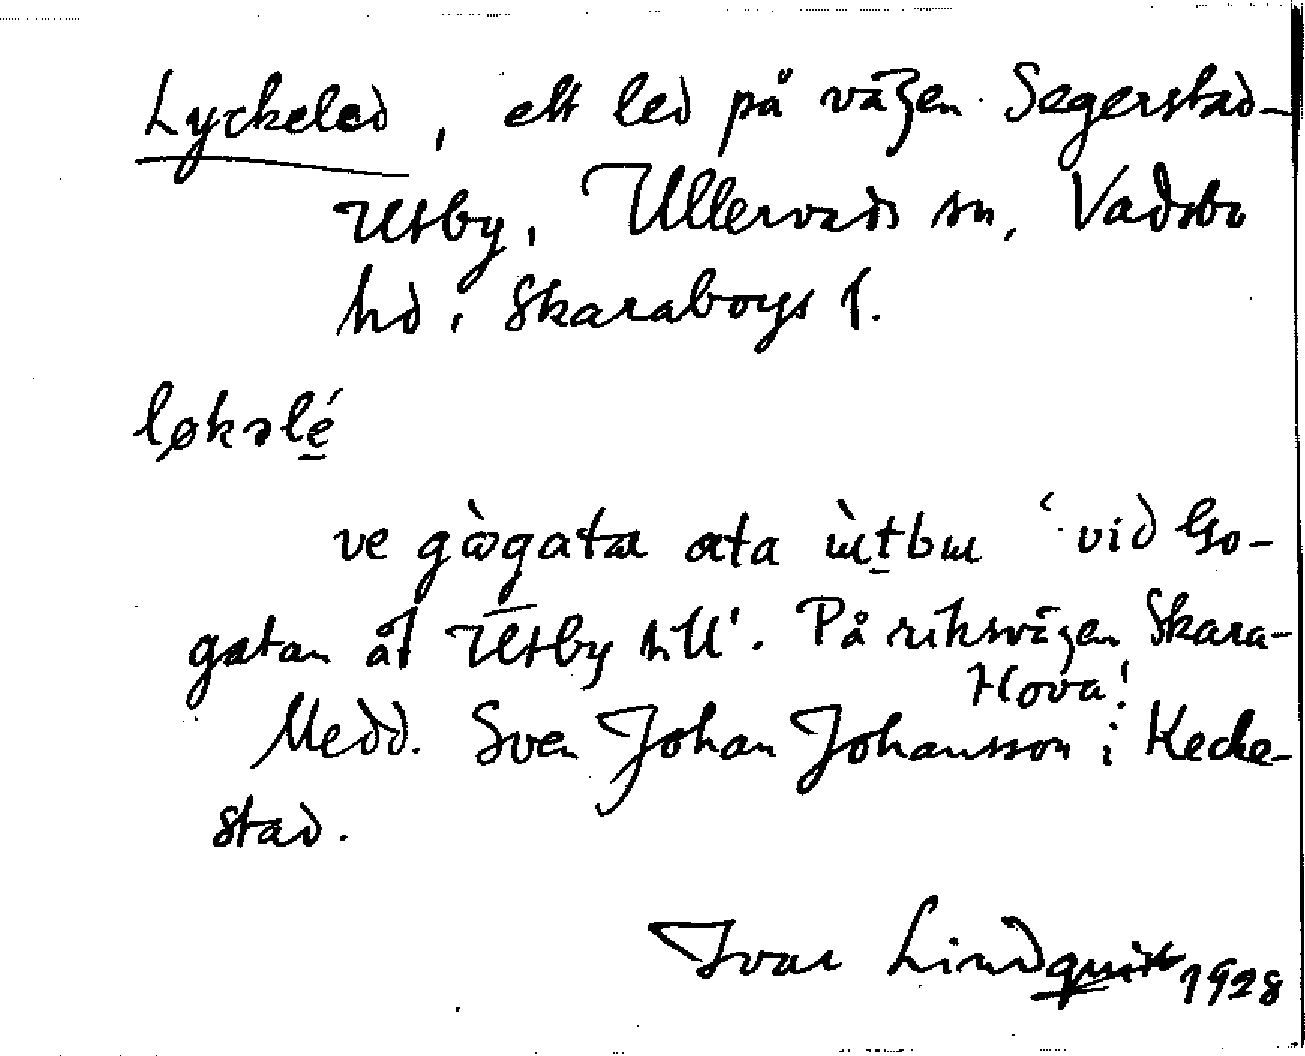 Lyckeled, ett led på vägen Segerstad-
Utby, Ullervads sn, Vadsbo
hd, Skaraborgs l.
løkəlé̱
ve gògata ata ɯ̀ṯbɯ 'vid Go-
gatan åt Utby till'. På riksvägen Skara-
Hova!
Medd. Sven Johan Johansson i Hecke-
stad.
Ivar Lindquist 1928